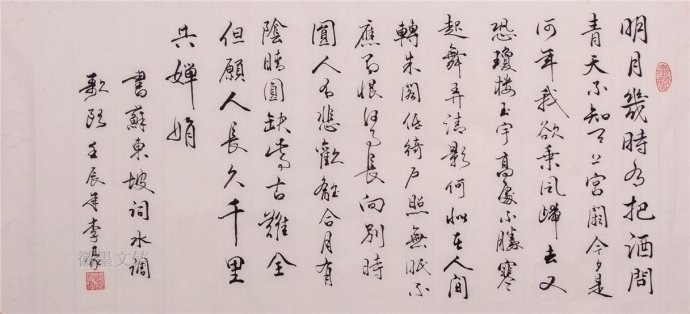 明月幾時有把酒問
青天不知天上宮闕今夕是
何年我欲乘風歸去又
恐瓊樓玉宇高處不勝寒
起舞弄清影何似在人間
轉朱閣低綺戶照無眠不
應有恨何事長向別時
圓人有悲歡離合月有
陰晴圓缺此事古難全
但願人長久千里
共嬋娟
書蘇東坡詞水調
歌頭壬辰年李
徽墨文